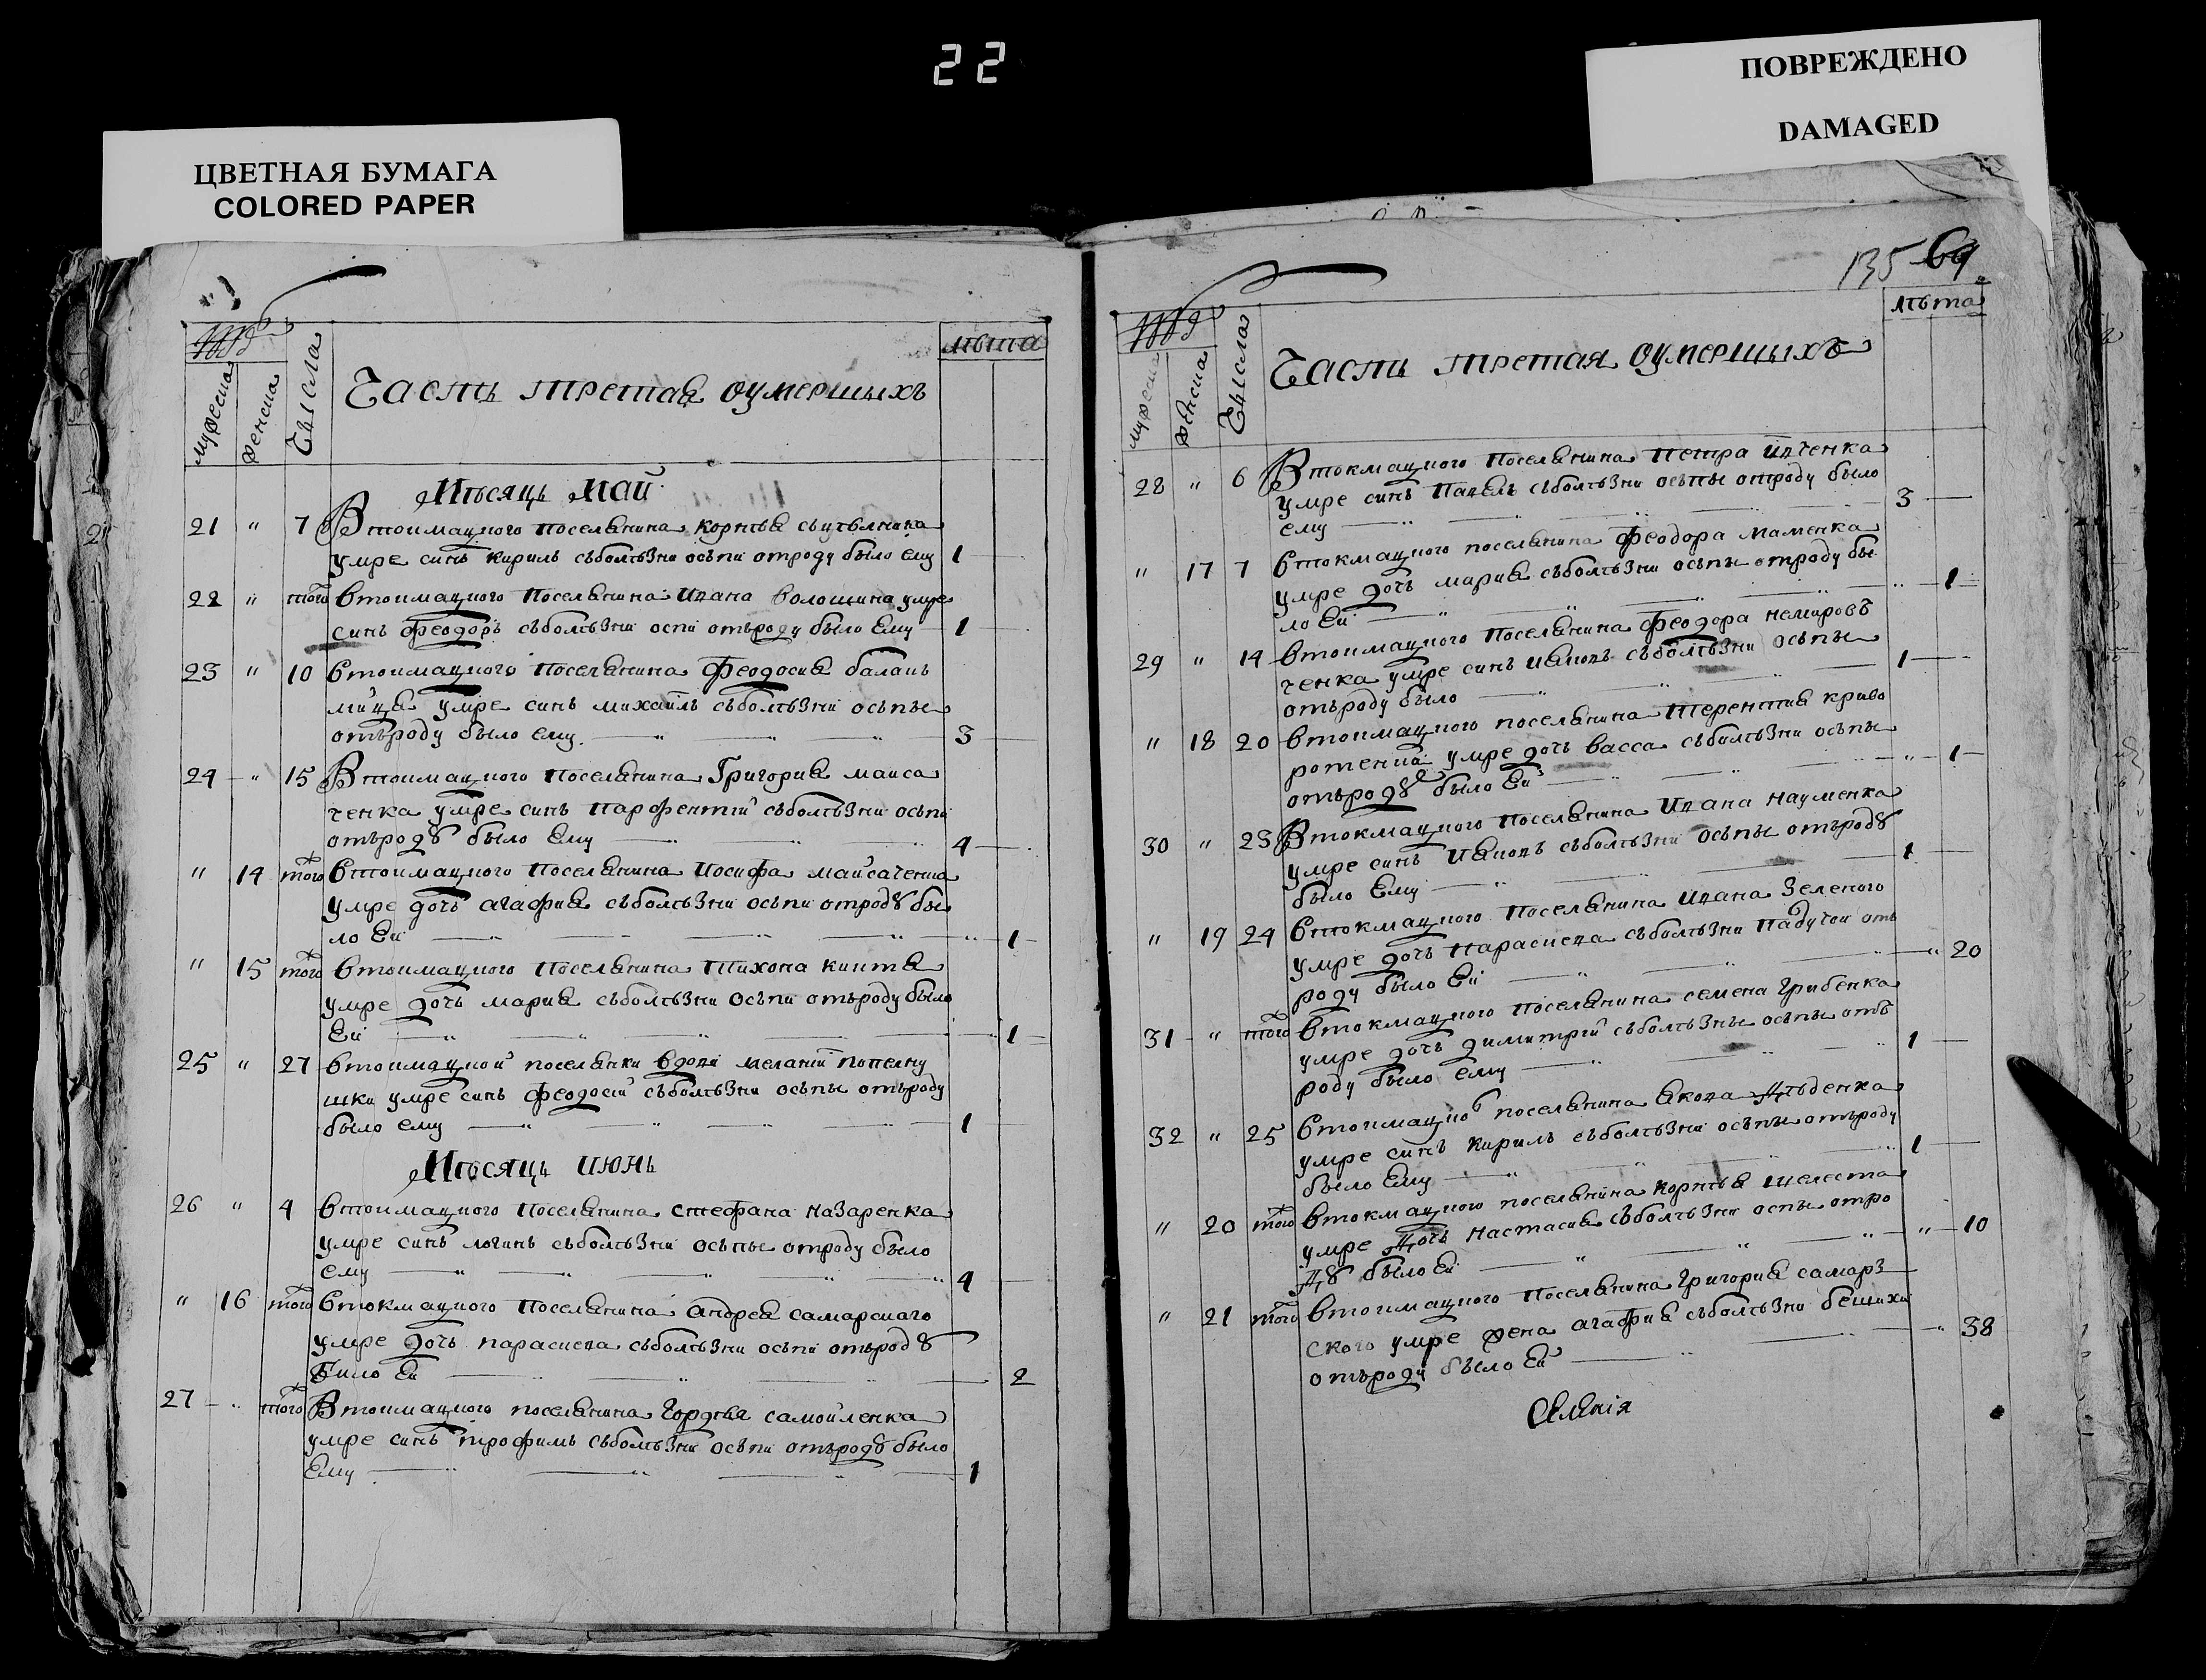 22
ЦВЕТНАЯ БУМАГА
COLORED PAPER
ПОВРЕЖДЕНО
DAMAGED
мужеска
женска
Числа
Часть третая оумершыхъ
лѣта
Мѣсяць Май
21 " 7 Втокмацкого поселянина Корнѣя
умре синъ Кирилъ съболѣзни осъпи отроду было ему 1
22 " того Втокмацкого поселянина Ивана Волошина умре
синъ Феодоръ съболѣзни оспи отъроду было Ему 1
23 " 10 Втокмацкого поселянина Феодосия балань
умре синъ михаилъ съболѣзни осъпы
отъроду было ему 3
24 " 15 Втокмацкого поселянина Григория маиса
ченка умре синъ Парфентий съболѣзни осъпи
отъроду было Ему 4
" 14 того Втокмацкого поселянина Иосифа маисаченка
умре дочь агафия съболѣзни осъпи отроду бы
ло Ей " 1
" 15 того Втокмацкого поселянина Тихона кияшкя
умре дочь мария съболѣзни осъпи отъроду было
Ей 1
25 " 27 Втокмацкой поселянки вдови мелании попелну
шки умре синъ феодосий съболѣзни осъпы отъроду
было ему 1
Мѣсяць июнь
26 " 4 Втокмацкого поселянина стефана назаренка
умре синъ логинъ съболѣзни осъпы отроду было
ему 4
" 16 того Втокмацкого поселянина андрея самарскаго
умре дочь параскева съболѣзни осъпи отъроду
Било Ей 2
27 " того Втокмацкого поселянина Гордѣя самойленка
умре синъ трофимъ съболѣзни осъпи отъроду было
Ему 1
135 69
мужеска
женска
Числа
Часть третая оумершыхъ
лѣта
28 " 6 Втокмацкого поселянина Петра
умре синъ Павелъ съболѣзни осъпы отроду было
ему 3
" 17 7 Втокмацкого поселянина феодора маменка
умре дочь мария съболѣзни осъпы отроду бы
ло Ей " 1
29 " 14 Втокмацкого поселянина феодора немировъ
ченка умре синъ иаковъ съболѣзни осъпы
отъроду было 1
" 18 20 Втокмацкого поселянина терентия криво
ротенка умре дочь васса съболѣзни осъпы
отъроду было Ей " 1
30 " 23 Втокмацкого поселянина Ивана Науменка
умре синъ Иаковъ съболѣзни осъпы отъроду
было Ему 1
" 19 24 Втокмацкого поселянина Ивана Зеленого
умре дочь параскева съболѣзни падучой отъ
роду было Ей " 20
31 " того Втокмацкого поселянина семена грибенка
умре дочь димитрий съболѣзны осъпы отъ
роду было ему 1
32 " 25 Втокмацко поселянина якова Дѣденка
умре синъ Кирилъ съболѣзни осъпы отъроду
было Ему 1
" 20 того Втокмацкого поселянина корнѣя шелеста
умре Дочь Настасия съболѣзни оспы отро
Ду было Ей " 10
" 21 того Втокмацкого поселянина Григория самарз
ского умре жена агафия съболѣзни бешихи
отъроду было Ей " 38